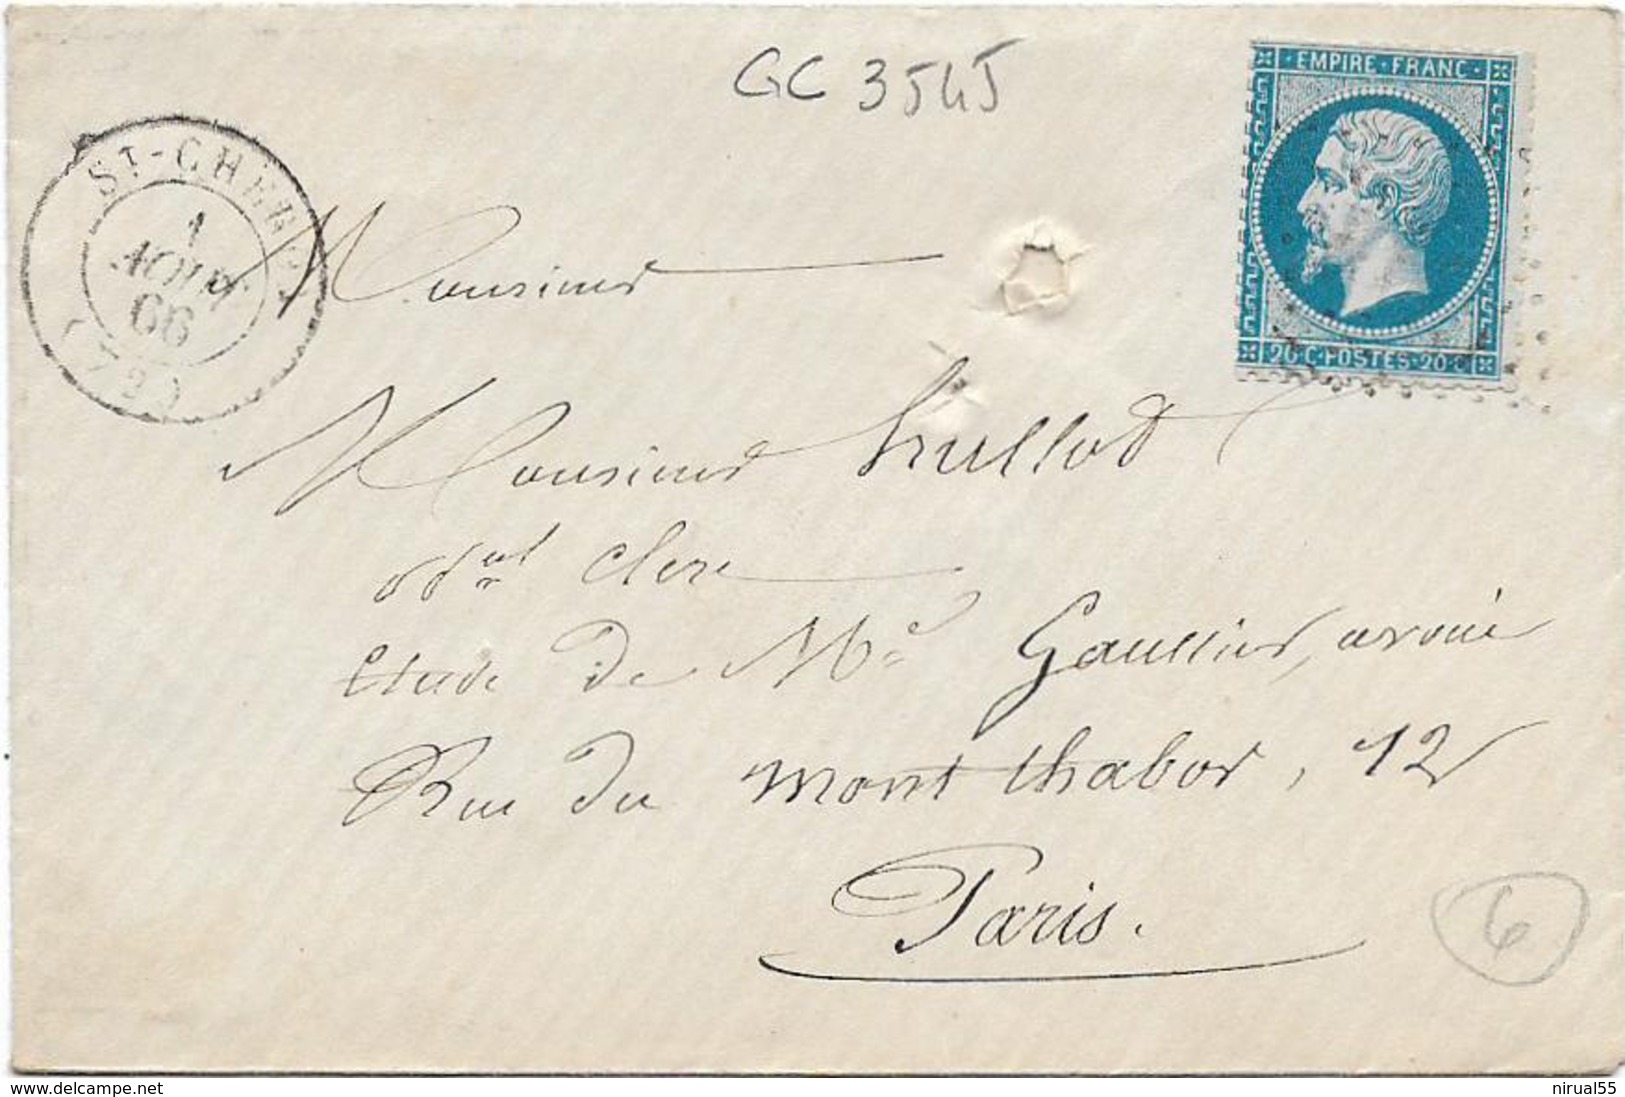 GC 3545
EMPIRE · FRANC ·
20 · C · POSTES · 20 · C
ST-CHER
1
NOV
66
Monsieur
Monsieur hullot
clerc
Etude de Me Gaullier, avoué
Rue du Mont thabor, 12
Paris.
6
www.delcampe.net
nirual55